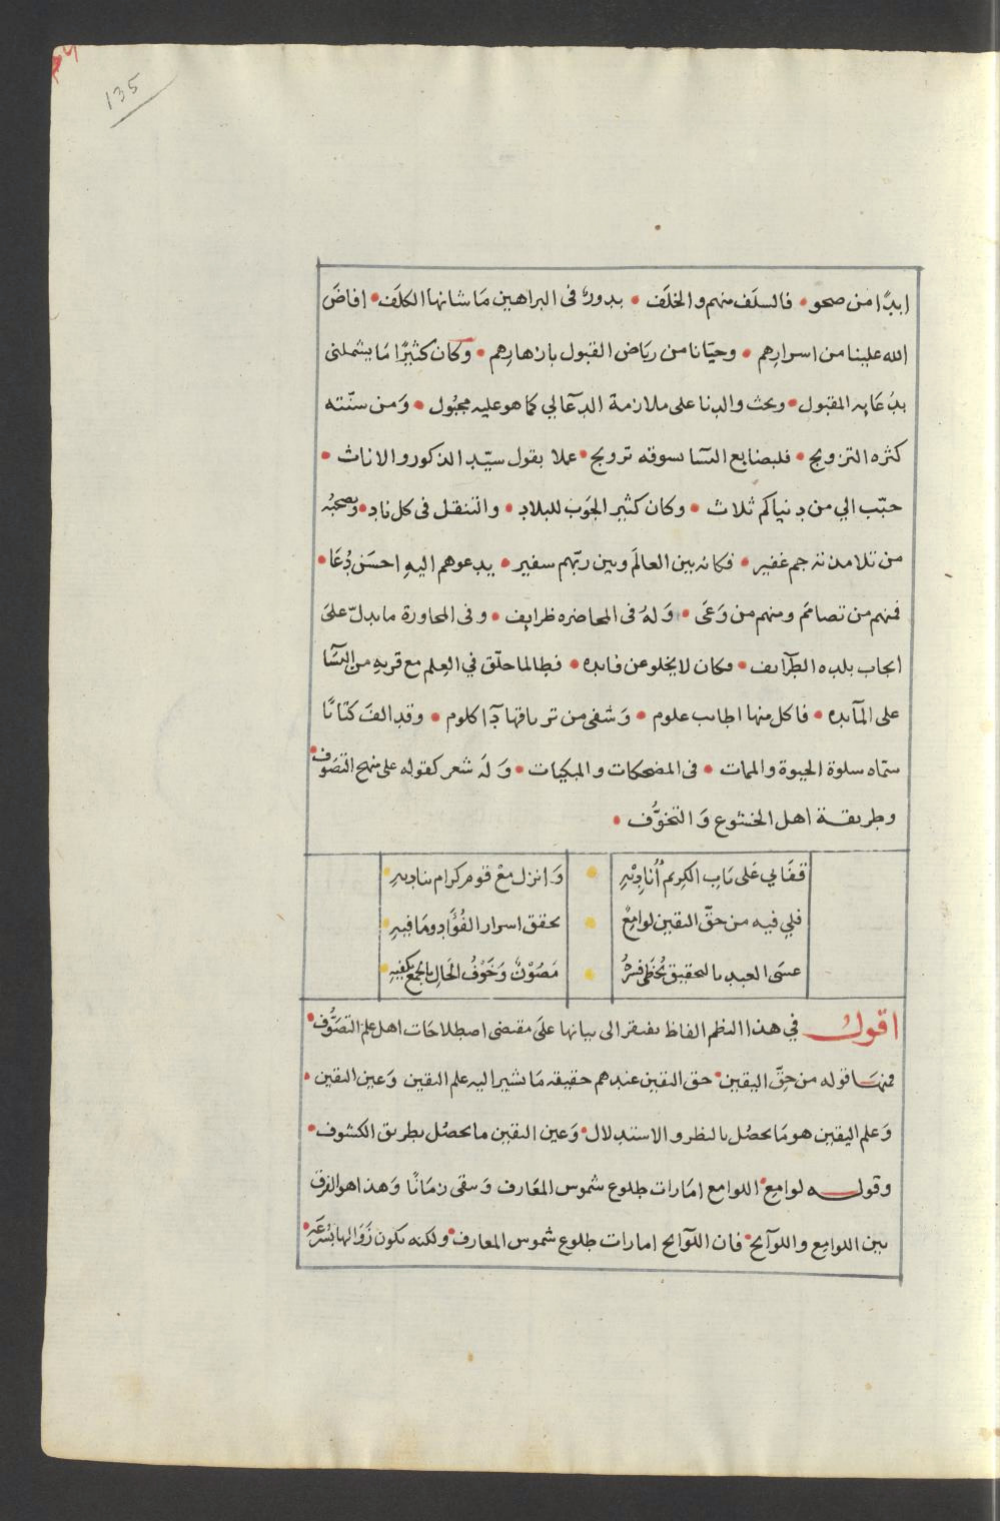 135
ابدًا من صحو • فالسلَف منهم والخلَف • بدورٌ فى البراهين مَا شانها الكلَف • افاضَ
الله علينا من اسرارِهم • وحيّانا من ريَاض القبول بازهارِهم • وكان كثيرًا مَا يشملنى
بدُعَايه المقبول • ويحث والدنا على ملازمة الدعآ لي كما هو عليه مجبُول • وَمن سنّته
كثره التزويج • فلبضايع النسَا بسوقه ترويج • عملا بقول سيّد الذكور والاناث •
حبّب الي من دنياكم ثلاث • وكان كثير الجَوب للبلاد • والتنقل فى كل ناد • وبصحبُه
من تلامذته جم غفير • فكانه بين العالَم وبين ربّهم سفير • يدعوهم اليهِ احسَن دُعَا •
فمنهم من تصامَم ومنهم من وَعَى • وَلهُ فى المحاضره ظرايف • وفى المحاورة ما يدلّ علىَ
انجاب بلده الطّرآيف • وكان لا يخلو عن فايده • فطالما حلّق في العِلم مع قريهِ من النسَآ
على المآيده • فاكل منها اطايب علوم • وَشفى من ترياقها ذآ كلوم • وقد الفَ كتَابًا
سمّاه سلوة الحيوة والممات • فى المضحكات والمبكيات • وَلَه شعر كقوله على منهج التصَوف •
وطريقة اهل الخشوع وَالتخوُّف •
قفَا بي عَلى بَابِ الكريمِ اُنَادِيْهِ • وَانزل معْ قوم كرام بنادِيهِ
فلي فيه من حقّ اليقين لوامِعٌ • تحقق اسرار الفُؤَاد ومَا فيهِ
عسَى العبد بالتحقيق يُحظَى فسِرُّهُ • مَصُوْنٌ وَخَوْفُ الحَالِ بالجمعِ يَكفيهِ
اقول في هذا النظم الفاظ يفتقر الى بيانها علىَ مقتضى اصطلاحَات اهل علم التصَوُّف •
فمنهَا قوله من حقّ اليقين • حق اليقين عندهم حقيقه مَا نشير اليه علم اليقين وَعين اليقين •
وَعلم اليقين هو مَا يحصُل بالنظر والاستدلال • وَعين اليقين ما يحصُل بطريق الكشوف •
وقوله لوامِع • اللوامع امَارات طلوع شموس المعَارف وَتبقى زمَانًا وَهذا هو الفرق
بين اللوامع واللوآيح • فان اللوّايح امارات طلوع شموس المعارف • ولكنه يكون زَوَالها بسُرعَه •